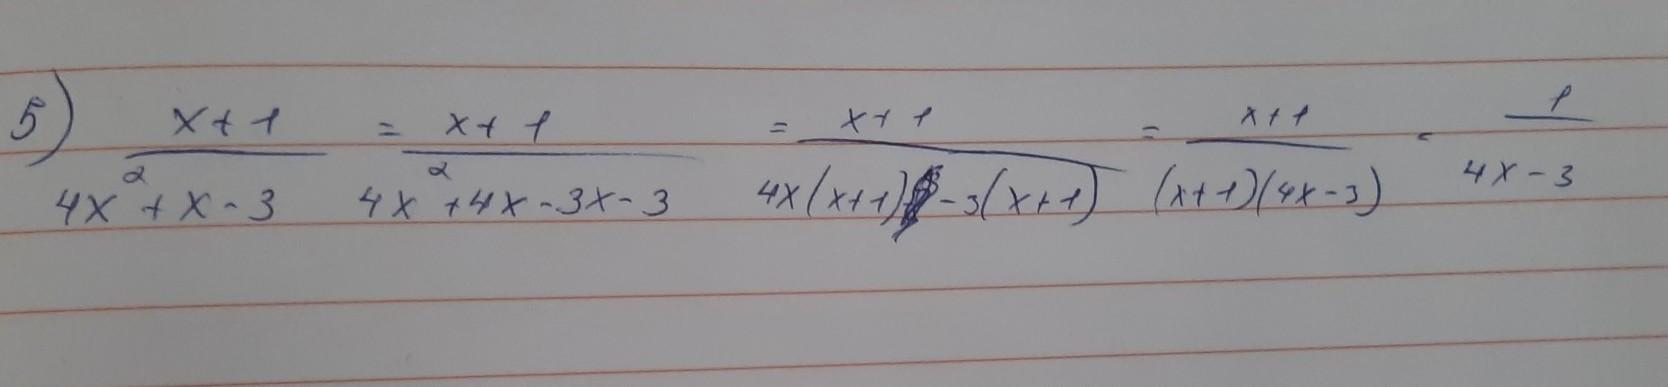 5) x+1/4x²+x-3 = x+1/4x²+4x-3x-3 = x+1/4x(x+1)-3(x+1) = x+1/(x+1)(4x-3) = 1/4x-3